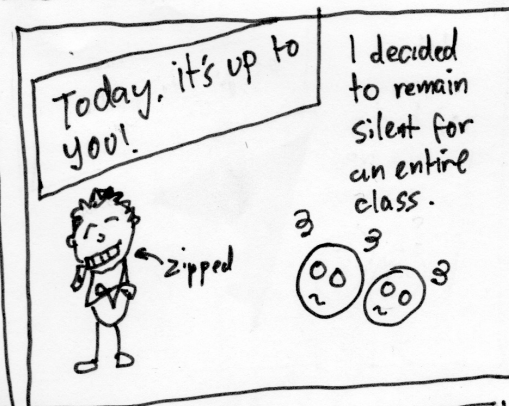 Today, it's up to
you!
I decided
to remain
silent for
an entire
class.
zipped